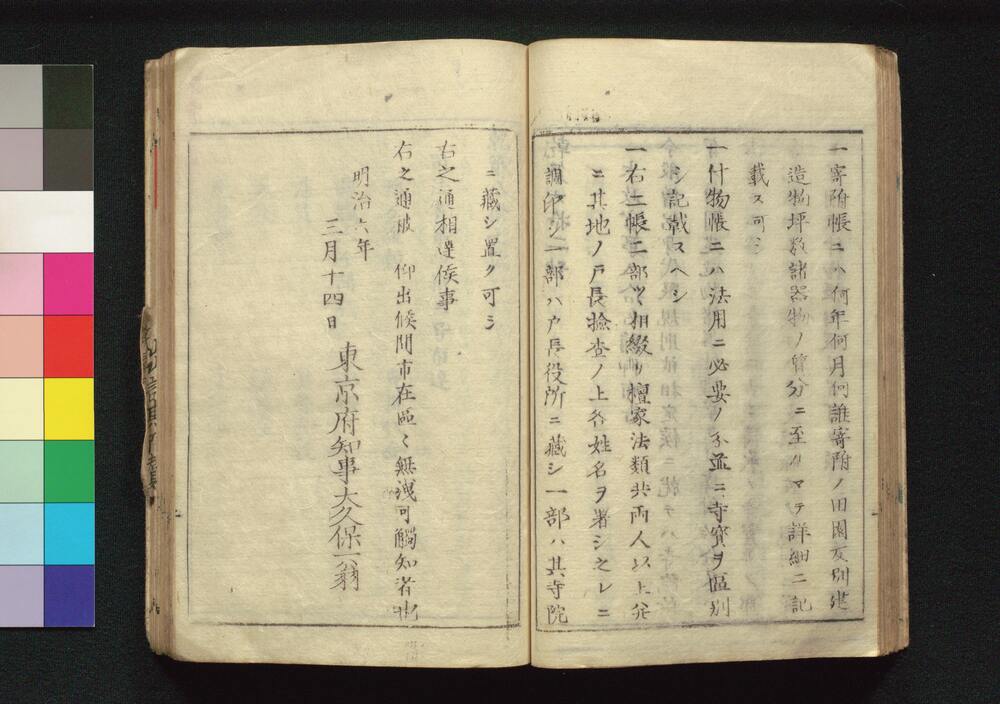 一寄附帳ニハ何年何月何誰寄附ノ田園反別建
造物坪数諸器物ノ員分ニ至ルマテ詳細ニ記
載ス可シ
一什物帳ニハ法用ニ必要ノ分並ニ寺寳ヲ區別
シ記載スヘシ
一右二帳二部ツヽ相綴リ檀家法類共両人以上并
ニ其地ノ戸長撿査ノ上各姓名ヲ署シ之レニ
調印シ一部ハ戸長役所ニ藏シ一部ハ其寺院
ニ藏シ置ク可シ
右之通相達候事
右之通被 仰出候間市在區々無洩可觸知者也
明治六年
三月十四日
東京府知事大久保一翁